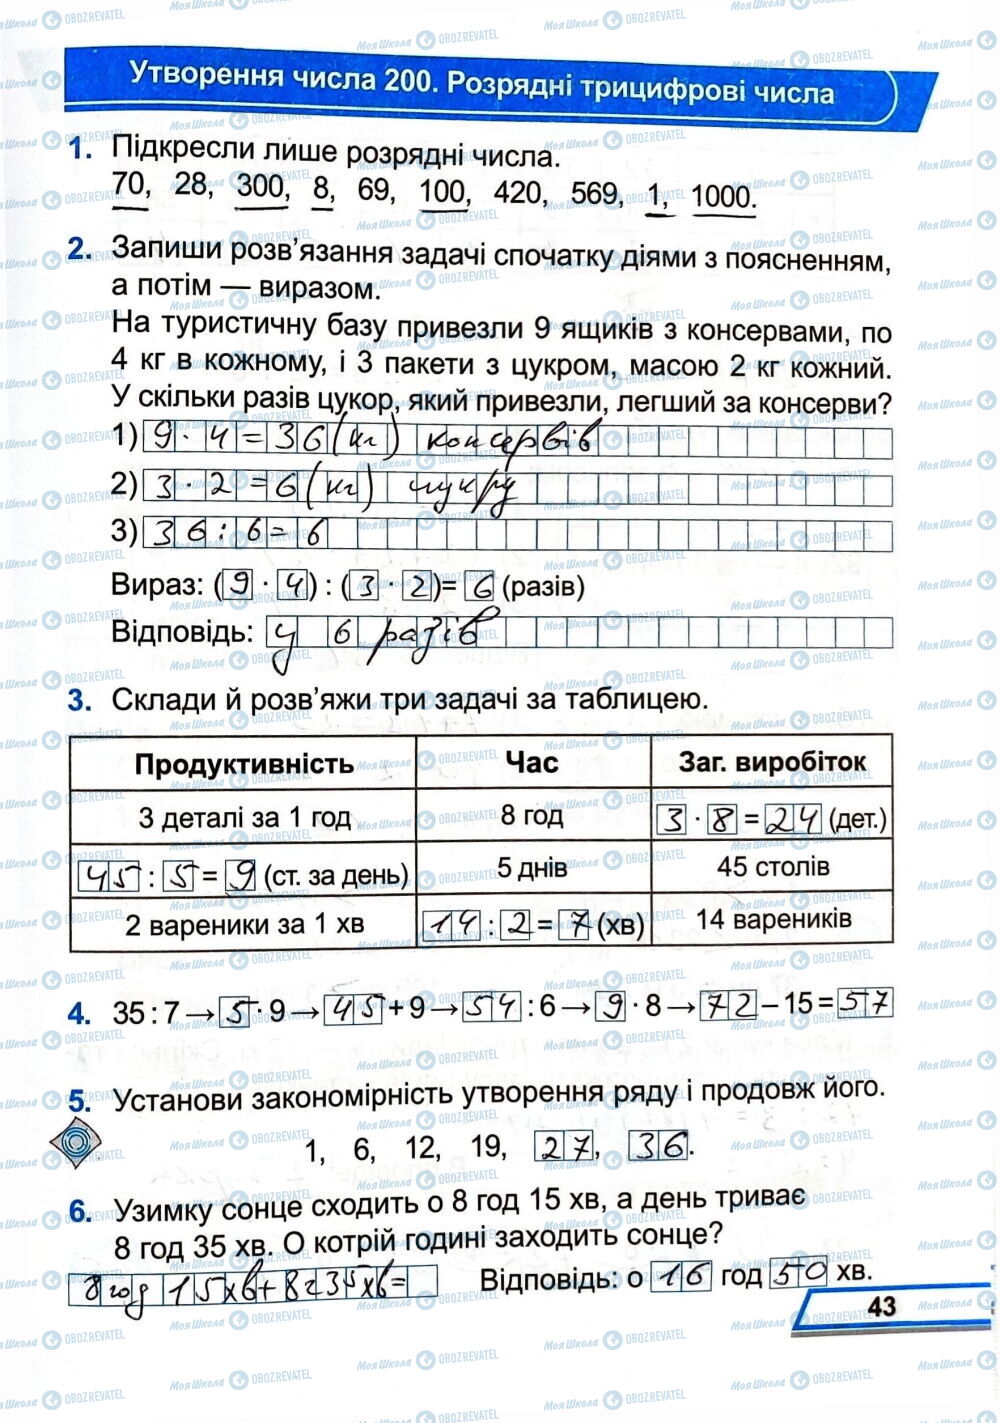 Утворення числа 200. Розрядні трицифрові числа
1. Підкресли лише розрядні числа.
70, 28, 300, 8, 69, 100, 420, 569, 1, 1000.
2. Запиши розв'язання задачі спочатку діями з поясненням,
а потім — виразом.
На туристичну базу привезли 9 ящиків з консервами, по
4 кг в кожному, і 3 пакети з цукром, масою 2 кг кожний.
У скільки разів цукор, який привезли, легший за консерви?
1) 9 · 4 = 36 (кг) консервів
2) 3 · 2 = 6 (кг) цукру
3) 36 : 6 = 6
Вираз: (9 · 4) : (3 · 2) = 6 (разів)
Відповідь: у 6 разів
3. Склади й розв'яжи три задачі за таблицею.
Продуктивність Час Заг. виробіток
3 деталі за 1 год 8 год 3 · 8 = 24 (дет.)
45 : 5 = 9 (ст. за день) 5 днів 45 столів
2 вареники за 1 хв 14 : 2 = 7 (хв) 14 вареників
4. 35 : 7 → 5 · 9 → 45 + 9 → 54 : 6 → 9 · 8 → 72 – 15 = 57
5. Установи закономірність утворення ряду і продовж його.
1, 6, 12, 19, 27, 36.
6. Узимку сонце сходить о 8 год 15 хв, а день триває
8 год 35 хв. О котрій годині заходить сонце?
8 год 15хв+8г35хв= Відповідь: о 16 год 50 хв.
43
МояШкола OBOZREVATEL